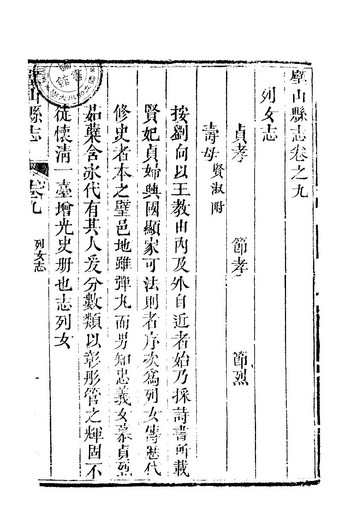 璧山縣志卷之九
列女志
貞孝 節孝 節烈
清母 賢淑附
按劉向以王教由內及外自近者始乃採詩書所載
賢妃貞婦興國顯家可法則者序次爲列女傳歷代
修史者本之璧邑地雖彈丸而男知忠義女慕貞烈
茹蘗含冰代有其人爰分數類以彰彤管之輝固不
徒懷清一臺增光史册也志列女
璧山縣志 卷九 列女志